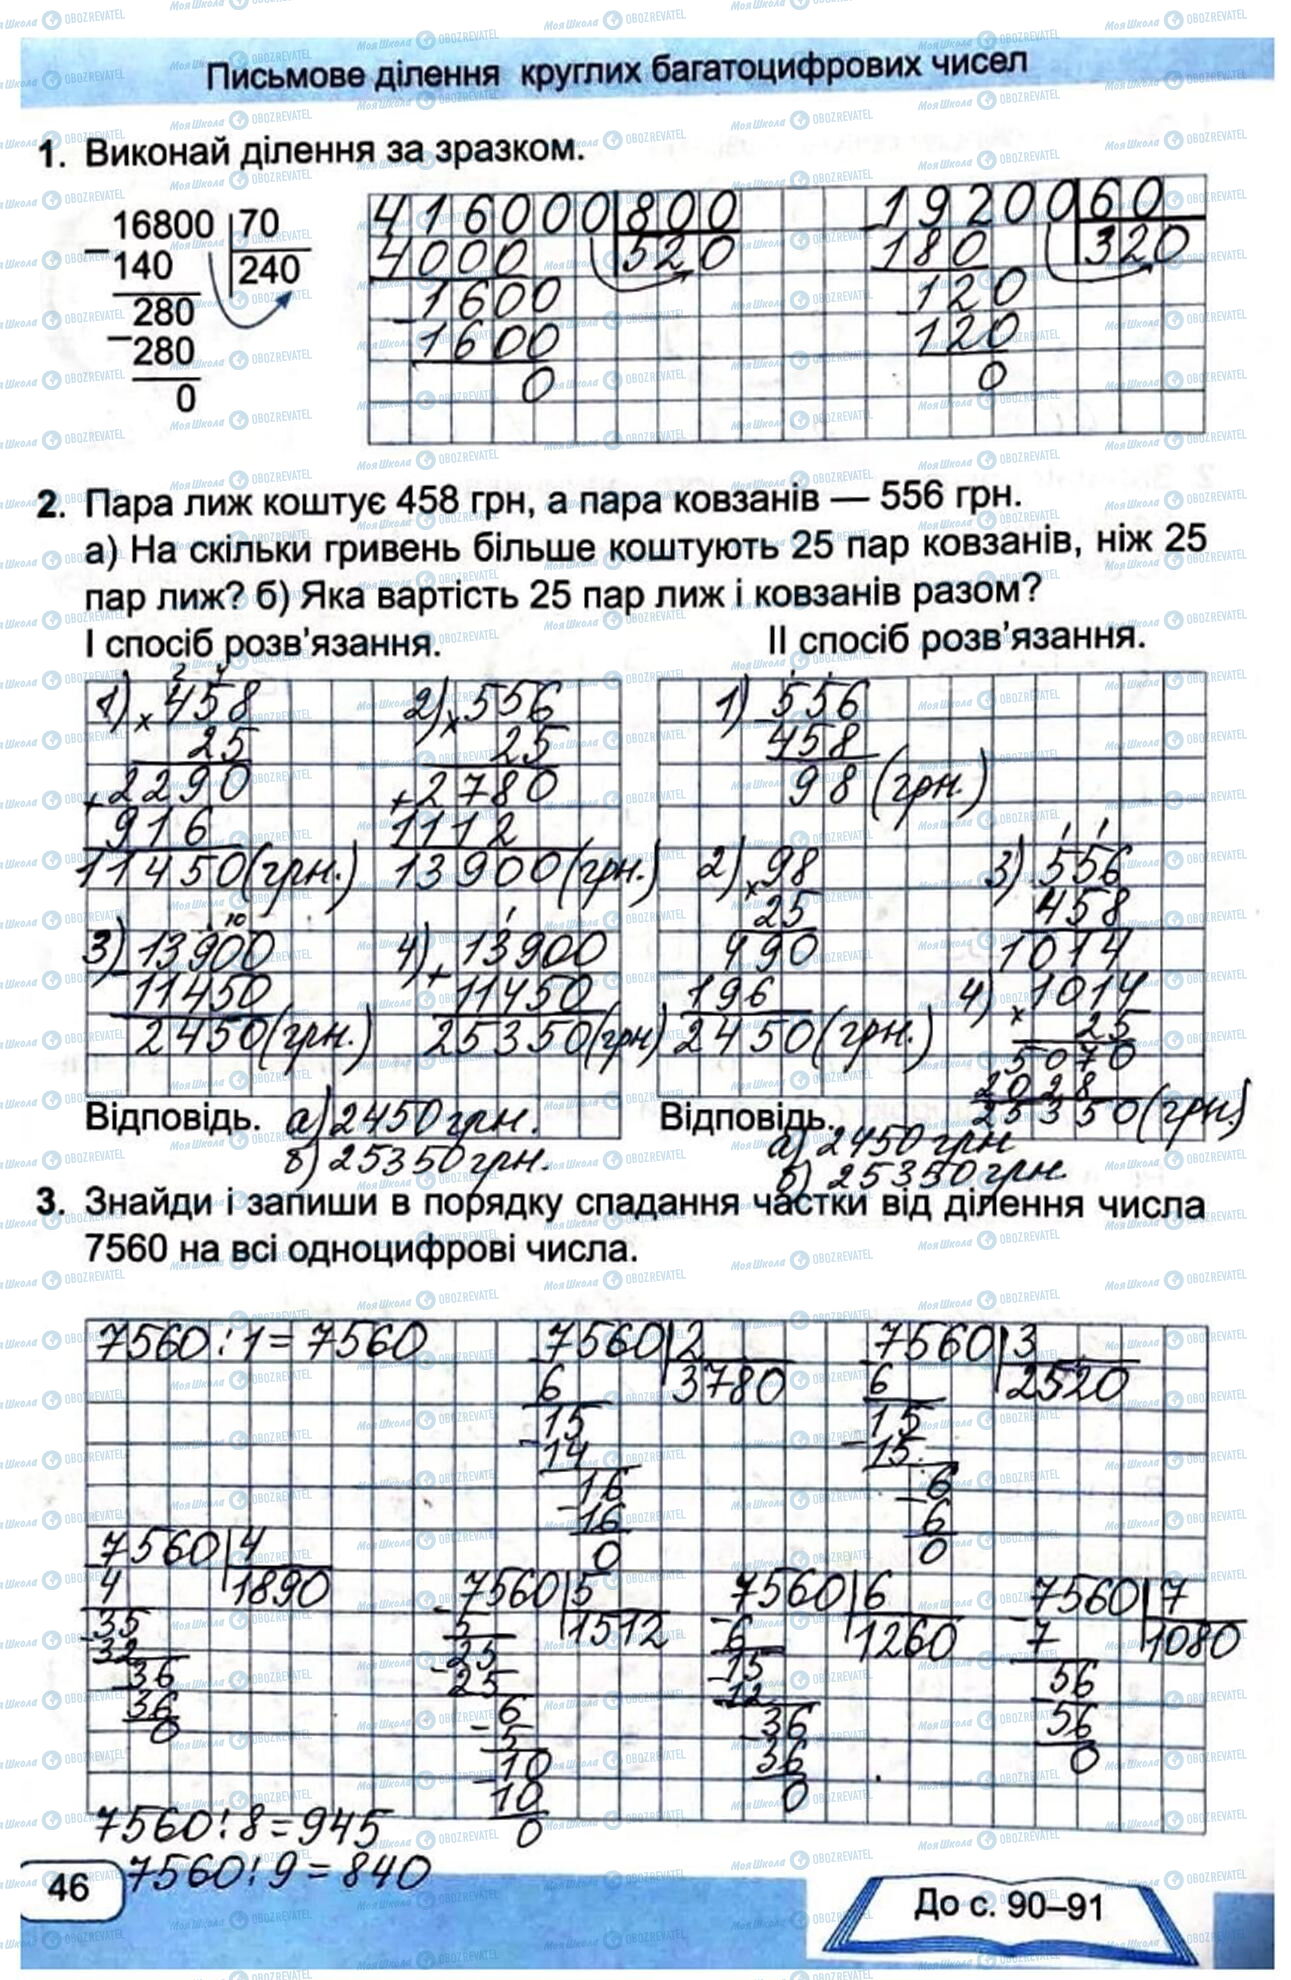 Письмове ділення круглих багатоцифрових чисел
1. Виконай ділення за зразком.
16800 | 70
140 | 240
280
280
0
416000 | 800
4000 | 520
1600
1600
0
19200 | 60
180 | 320
120
120
0
2. Пара лиж коштує 458 грн, а пара ковзанів — 556 грн.
а) На скільки гривень більше коштують 25 пар ковзанів, ніж 25
пар лиж? б) Яка вартість 25 пар лиж і ковзанів разом?
І спосіб розв’язання.
1) × 458
25
+ 2290
916
11450 (грн.)
2) × 556
25
+ 2780
1112
13900 (грн.)
3) 13900
11450
2450 (грн.)
4) + 13900
11450
25350 (грн)
Відповідь. а) 2450 грн.
б) 25350 грн.
ІІ спосіб розв’язання.
1) 556
458
98 (грн.)
2) × 98
25
490
196
2450 (грн.)
3) 556
458
1014
4) × 1014
25
5070
2028
25350 (грн)
Відповідь. а) 2450 грн
б) 25350 грн.
3. Знайди і запиши в порядку спадання частки від ділення числа
7560 на всі одноцифрові числа.
7560 : 1 = 7560
7560 | 2
6 | 3780
15
14
16
16
0
7560 | 3
6 | 2520
15
15
6
6
0
7560 | 4
4 | 1890
35
32
36
36
0
7560 | 5
5 | 1512
25
25
6
5
10
10
0
7560 | 6
6 | 1260
15
12
36
36
0
7560 | 7
7 | 1080
56
56
0
7560 : 8 = 945
7560 : 9 = 840
46
До с. 90–91
Моя Школа OBOZREVATEL